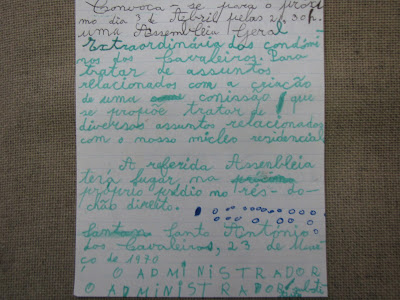 Convoca-se para o próxi
mo dia 3 de Abril pelas 21.30h.
uma Assembleia Geral
Extraordinária dos condómi
nos dos Cavaleiros. Para
tratar de assuntos
relacionados com a criação
de uma comissão que
se propõe tratar de
diversos assuntos relacionados
com o nosso núcleo residencial
A referida Assembleia
terá lugar no
próprio prédio no rés-do-
chão direito.
Santo António
dos Cavaleiros, 23 de Mar
ço de 1970
O ADMINISTRADOR
O ADMINISTRADOR